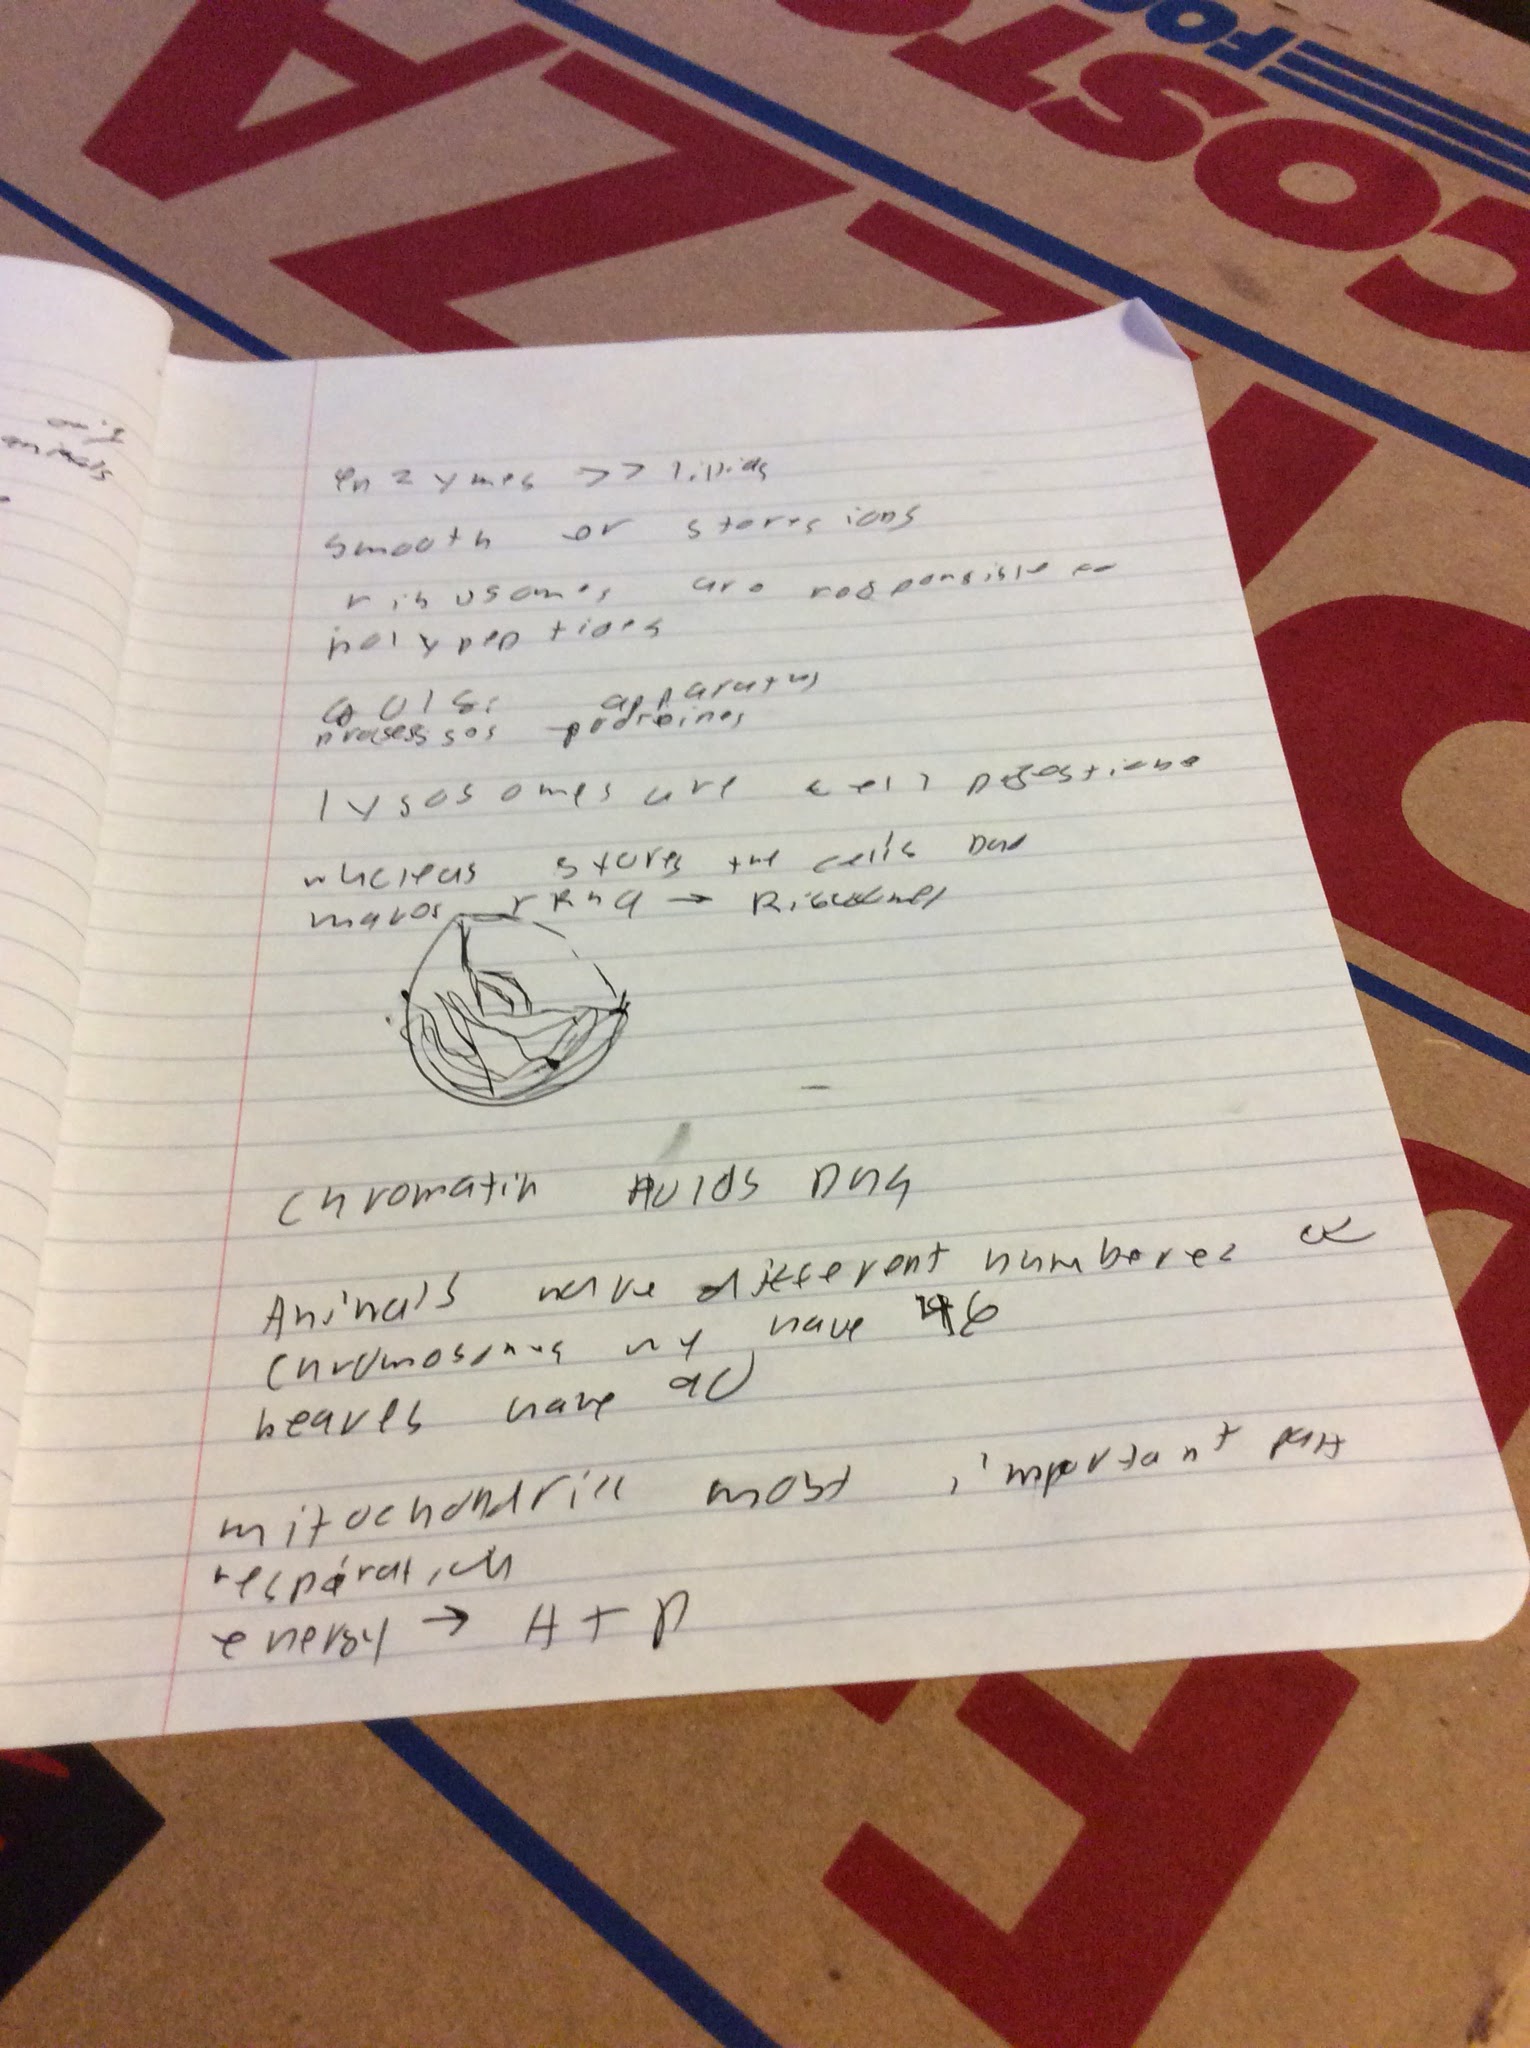 COSTCO
FOO
PIZZA
only
animals
enzymes >> lipids
smooth er stores ions
ribosomes are responsible
polypeptides
golgi apparatus
processes proteines
lysosomes are cell
nucleus stores the cells Dna
makes rRna → Ribosomes
chromatin Holds Dna
Animals have different numberes of
chromosomes we have 46
beavers have 40
mitochondria most important part
resparation
energy → ATP